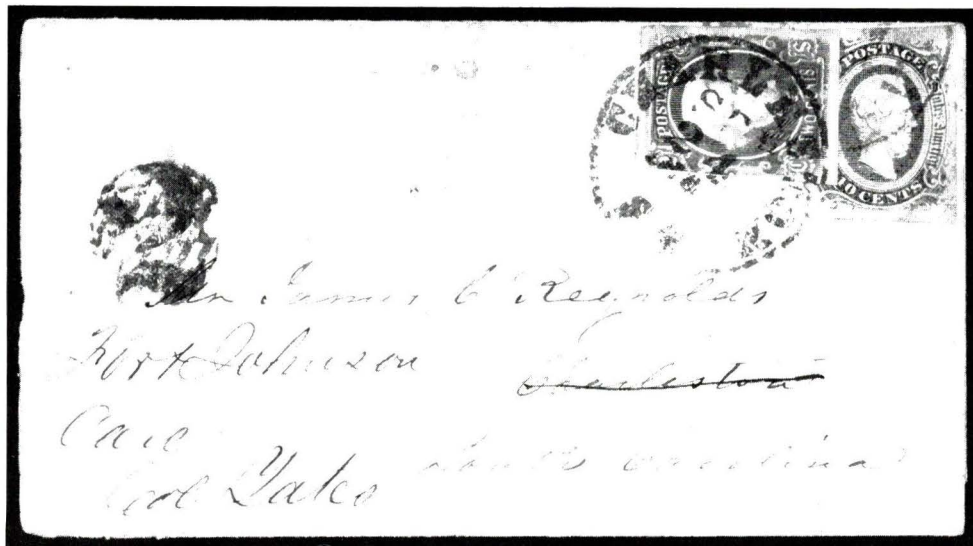 POSTAGE
POSTAGE
10 CENTS
Mr James C Reynolds
Fort Johnson
Charleston
Care
Col Yates
South Carolina